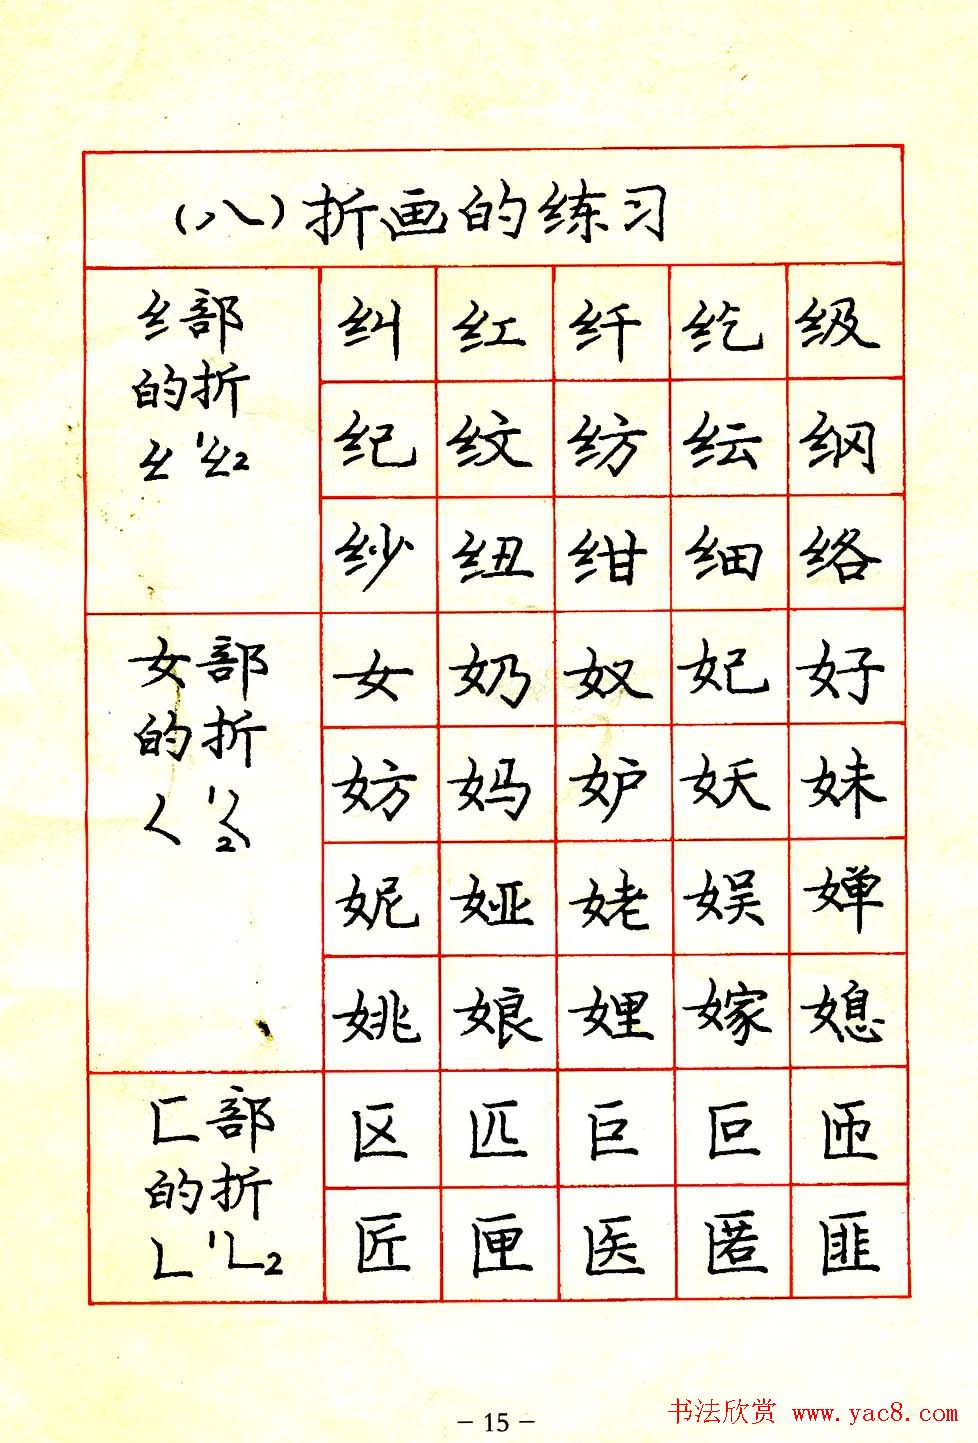 （八）折画的练习
纟部
的折
纠 红 纤 纥 级
纪 纹 纺 纭 纲
纱 纽 绀 细 络
女部
的折
女 奶 奴 妃 好
妨 妈 妒 妖 妹
妮 娅 姥 娱 婵
姚 娘 娌 嫁 媳
匚部
的折
区 匹 巨 叵 匝
匠 匣 医 匿 匪
- 15 -
书法欣赏 www.yac8.com